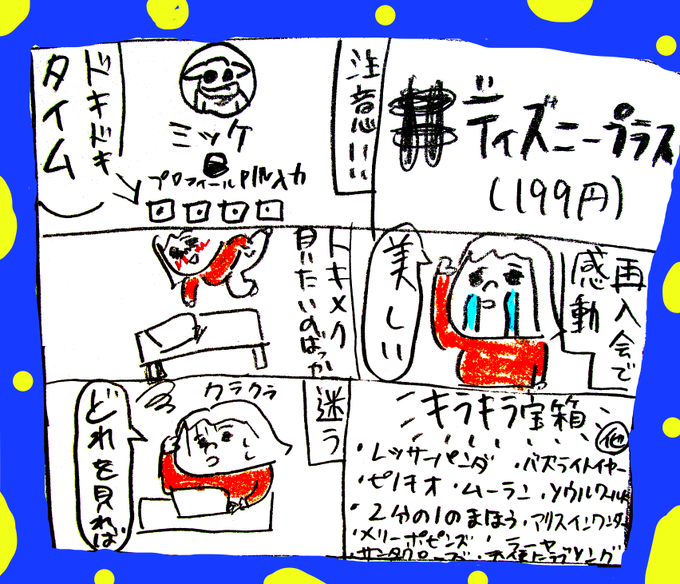 ディズニープラス
(199円)
注意!!!
ミッケ
プロフィールPIN入力
ドキドキ
タイム
再入会で
感動
美しい
トキメク
見たいのばっか
キラキラ宝箱
他
・レッサーパンダ ・バズライトイヤー
・ピノキオ ・ムーラン ・ソウルワールド
・2分の1のまほう ・アリスインワンダー
・メリーポピンズ ・ラーヤ
・サンタクローズ ・天使にラブソング
迷う
クラクラ
どれを見れば